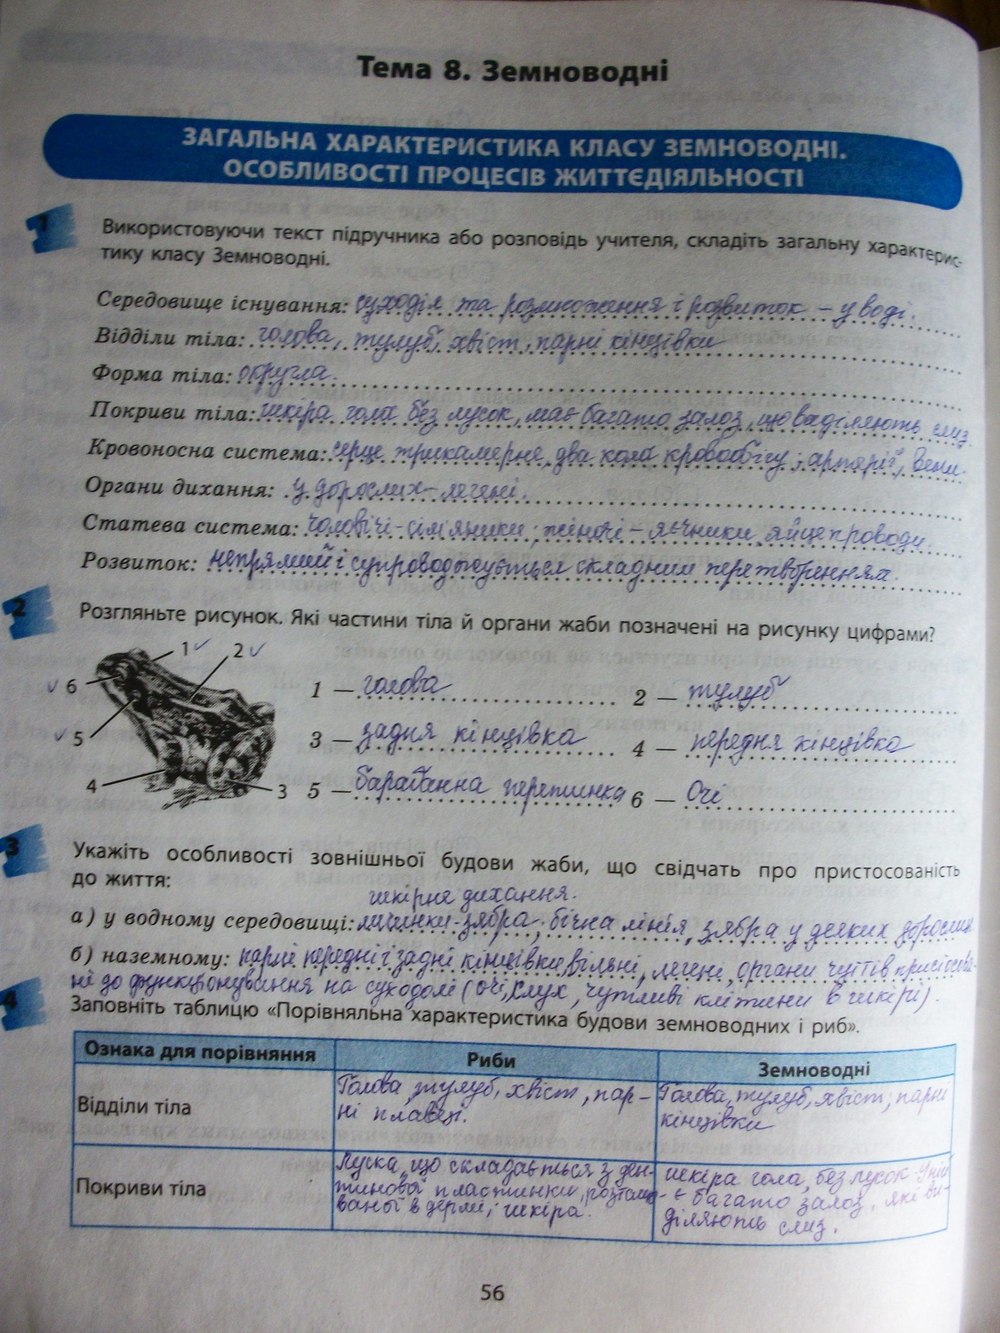 Тема 8. Земноводні
ЗАГАЛЬНА ХАРАКТЕРИСТИКА КЛАСУ ЗЕМНОВОДНІ.
ОСОБЛИВОСТІ ПРОЦЕСІВ ЖИТТЄДІЯЛЬНОСТІ
1
Використовуючи текст підручника або розповідь учителя, складіть загальну характерис-
тику класу Земноводні.
Середовище існування: суходіл та розмноження і розвиток – у воді.
Відділи тіла: голова, тулуб, хвіст, парні кінцівки
Форма тіла: округла.
Покриви тіла: шкіра гола без лусок, має багато залоз, що виділяють слиз
Кровоносна система: серце трикамерне, два кола кровообігу, артерії, вени.
Органи дихання: у дорослих – легені.
Статева система: чоловічі - сім'яники; жіночі – яєчники, яйцепроводи.
Розвиток: непрямий і супроводжується складним перетворенням.
2
Розгляньте рисунок. Які частини тіла й органи жаби позначені на рисунку цифрами?
1 ✓ 2 ✓
✓ 6
✓ 5
4
3
1 — голова 2 — тулуб
3 — задня кінцівка 4 — передня кінцівка
5 — барабанна перетинка 6 — Очі
3
Укажіть особливості зовнішньої будови жаби, що свідчать про пристосованість
до життя:
шкірне дихання.
а) у водному середовищі: личинки - зябра; бічна лінія, зябра у деяких дорослих
б) наземному: парні передні і задні кінцівки, вільні, легені, органи чуттів пристосова-
ні до функціонування на суходолі (очі, слух, чутливі клітини в шкірі).
4
Заповніть таблицю «Порівняльна характеристика будови земноводних і риб».
Ознака для порівняння Риби Земноводні
Відділи тіла
Голова, тулуб, хвіст, пар-
ні плавці.
Голова, тулуб, хвіст, парні
кінцівки
Покриви тіла
Луска, що складається з ден-
тинової пластинки, розташо-
ваної в дермі, шкіра.
шкіра гола, без лусок. У ній
є багато залоз, які ви-
діляють слиз.
56